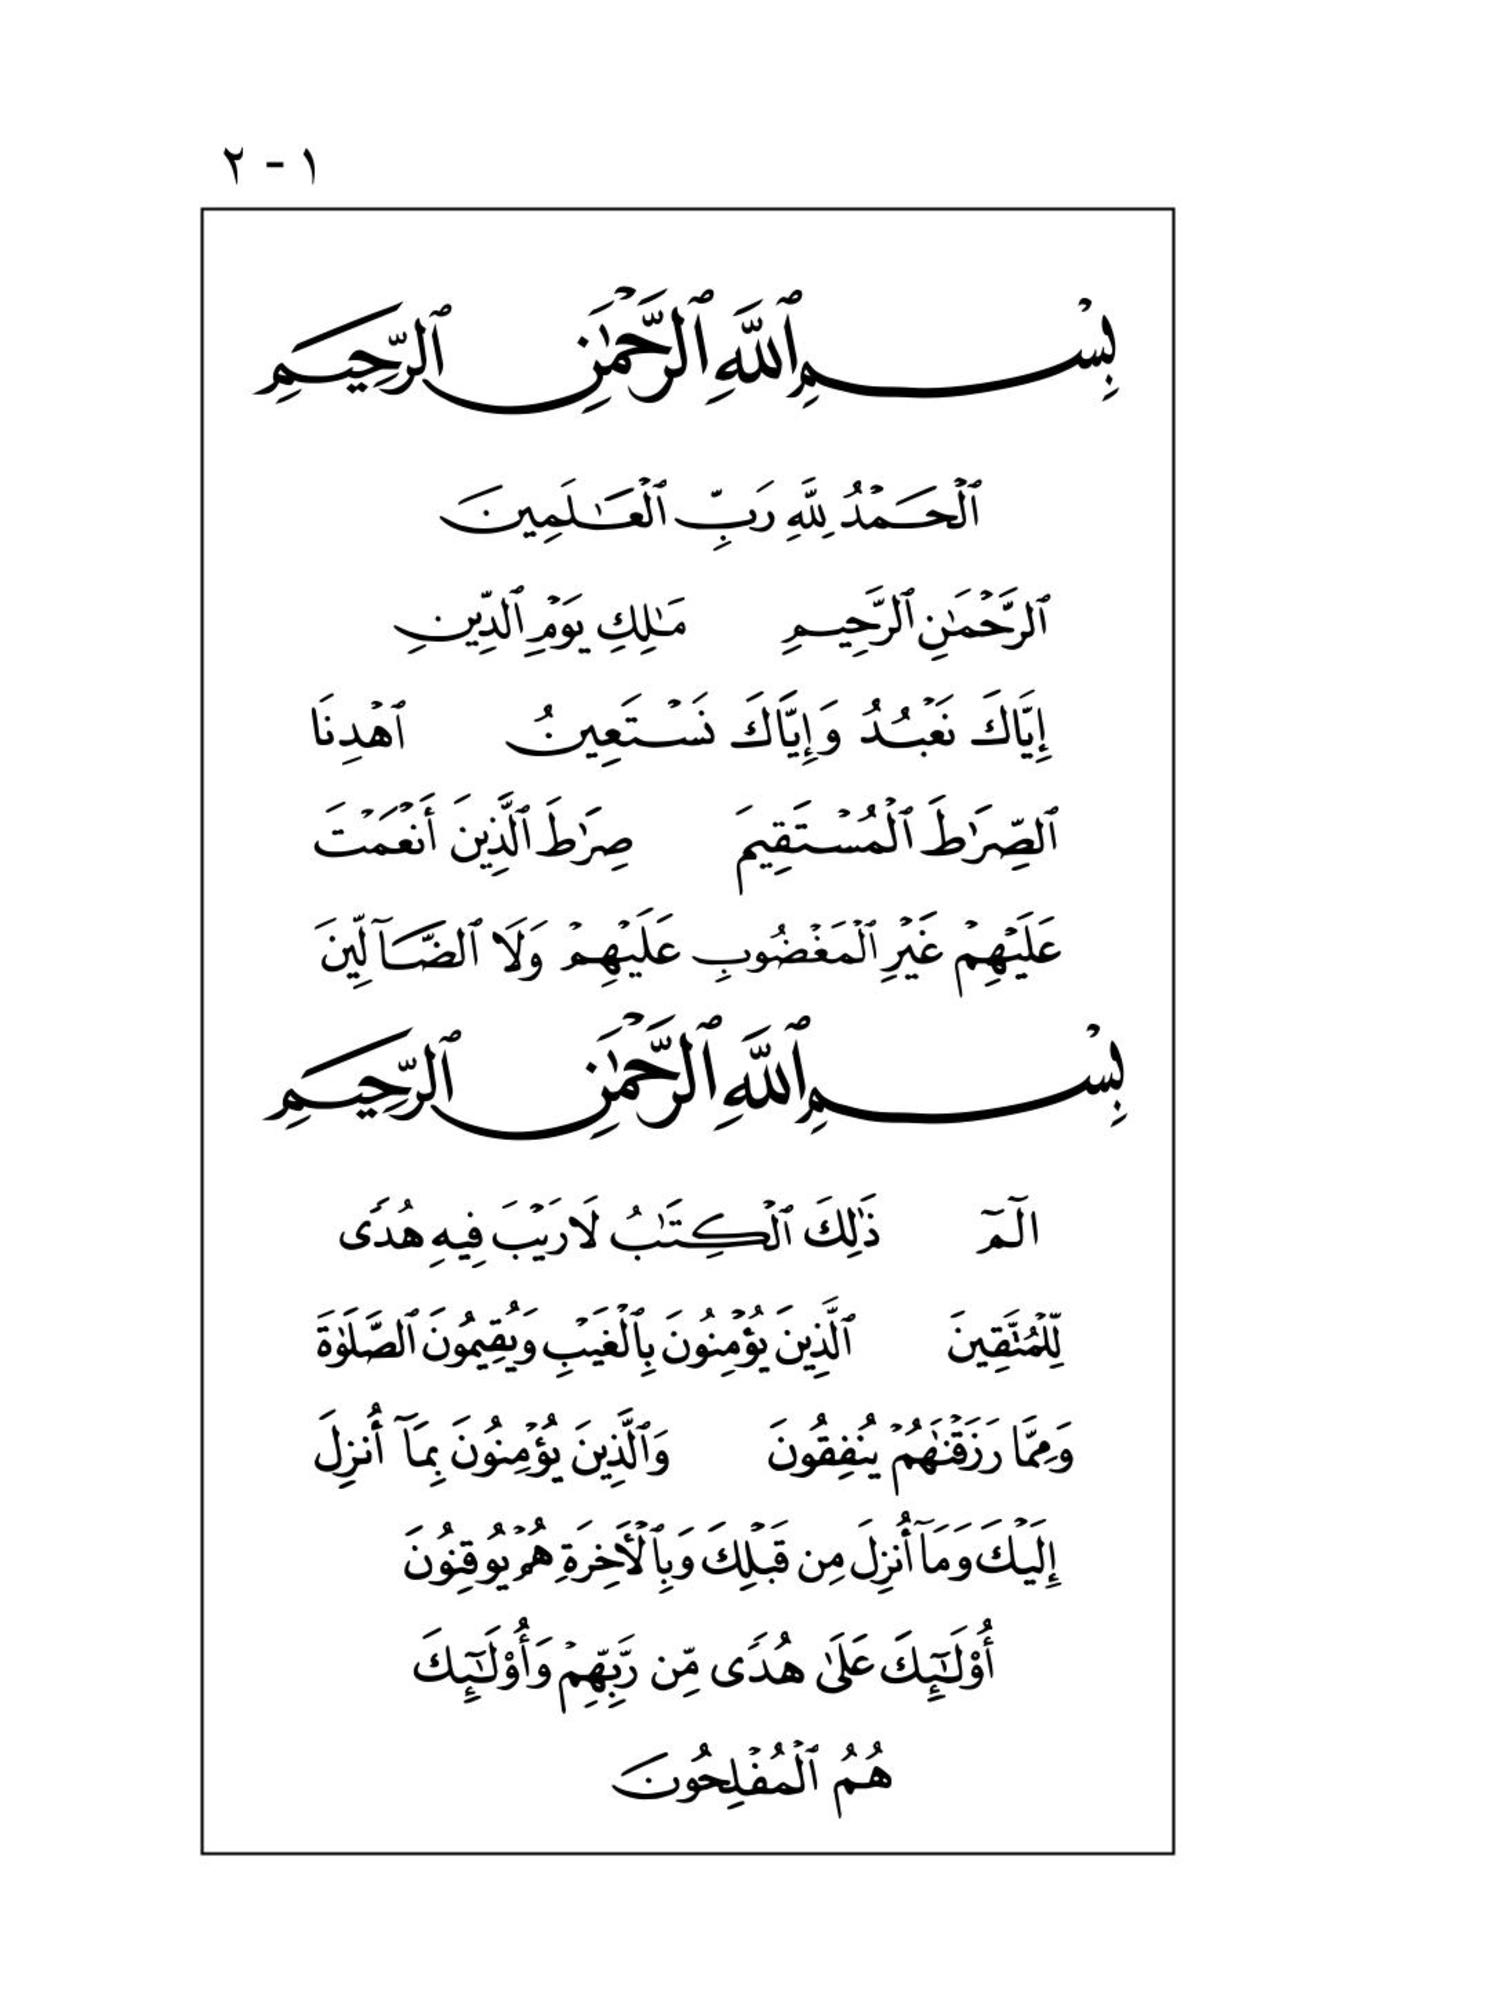 ١ - ٢
بِسۡمِ ٱللَّهِ ٱلرَّحۡمَٰنِ ٱلرَّحِيمِ
ٱلۡحَمۡدُ لِلَّهِ رَبِّ ٱلۡعَٰلَمِينَ
ٱلرَّحۡمَٰنِ ٱلرَّحِيمِ مَٰلِكِ يَوۡمِ ٱلدِّينِ
إِيَّاكَ نَعۡبُدُ وَإِيَّاكَ نَسۡتَعِينُ ٱهۡدِنَا
ٱلصِّرَٰطَ ٱلۡمُسۡتَقِيمَ صِرَٰطَ ٱلَّذِينَ أَنۡعَمۡتَ
عَلَيۡهِمۡ غَيۡرِ ٱلۡمَغۡضُوبِ عَلَيۡهِمۡ وَلَا ٱلضَّآلِّينَ
بِسۡمِ ٱللَّهِ ٱلرَّحۡمَٰنِ ٱلرَّحِيمِ
الٓمٓ ذَٰلِكَ ٱلۡكِتَٰبُ لَا رَيۡبَ فِيهِ هُدًى
لِّلۡمُتَّقِينَ ٱلَّذِينَ يُؤۡمِنُونَ بِٱلۡغَيۡبِ وَيُقِيمُونَ ٱلصَّلَوٰةَ
وَمِمَّا رَزَقۡنَٰهُمۡ يُنفِقُونَ وَٱلَّذِينَ يُؤۡمِنُونَ بِمَآ أُنزِلَ
إِلَيۡكَ وَمَآ أُنزِلَ مِن قَبۡلِكَ وَبِٱلۡأٓخِرَةِ هُمۡ يُوقِنُونَ
أُوْلَٰٓئِكَ عَلَىٰ هُدًى مِّن رَّبِّهِمۡ وَأُوْلَٰٓئِكَ
هُمُ ٱلۡمُفۡلِحُونَ